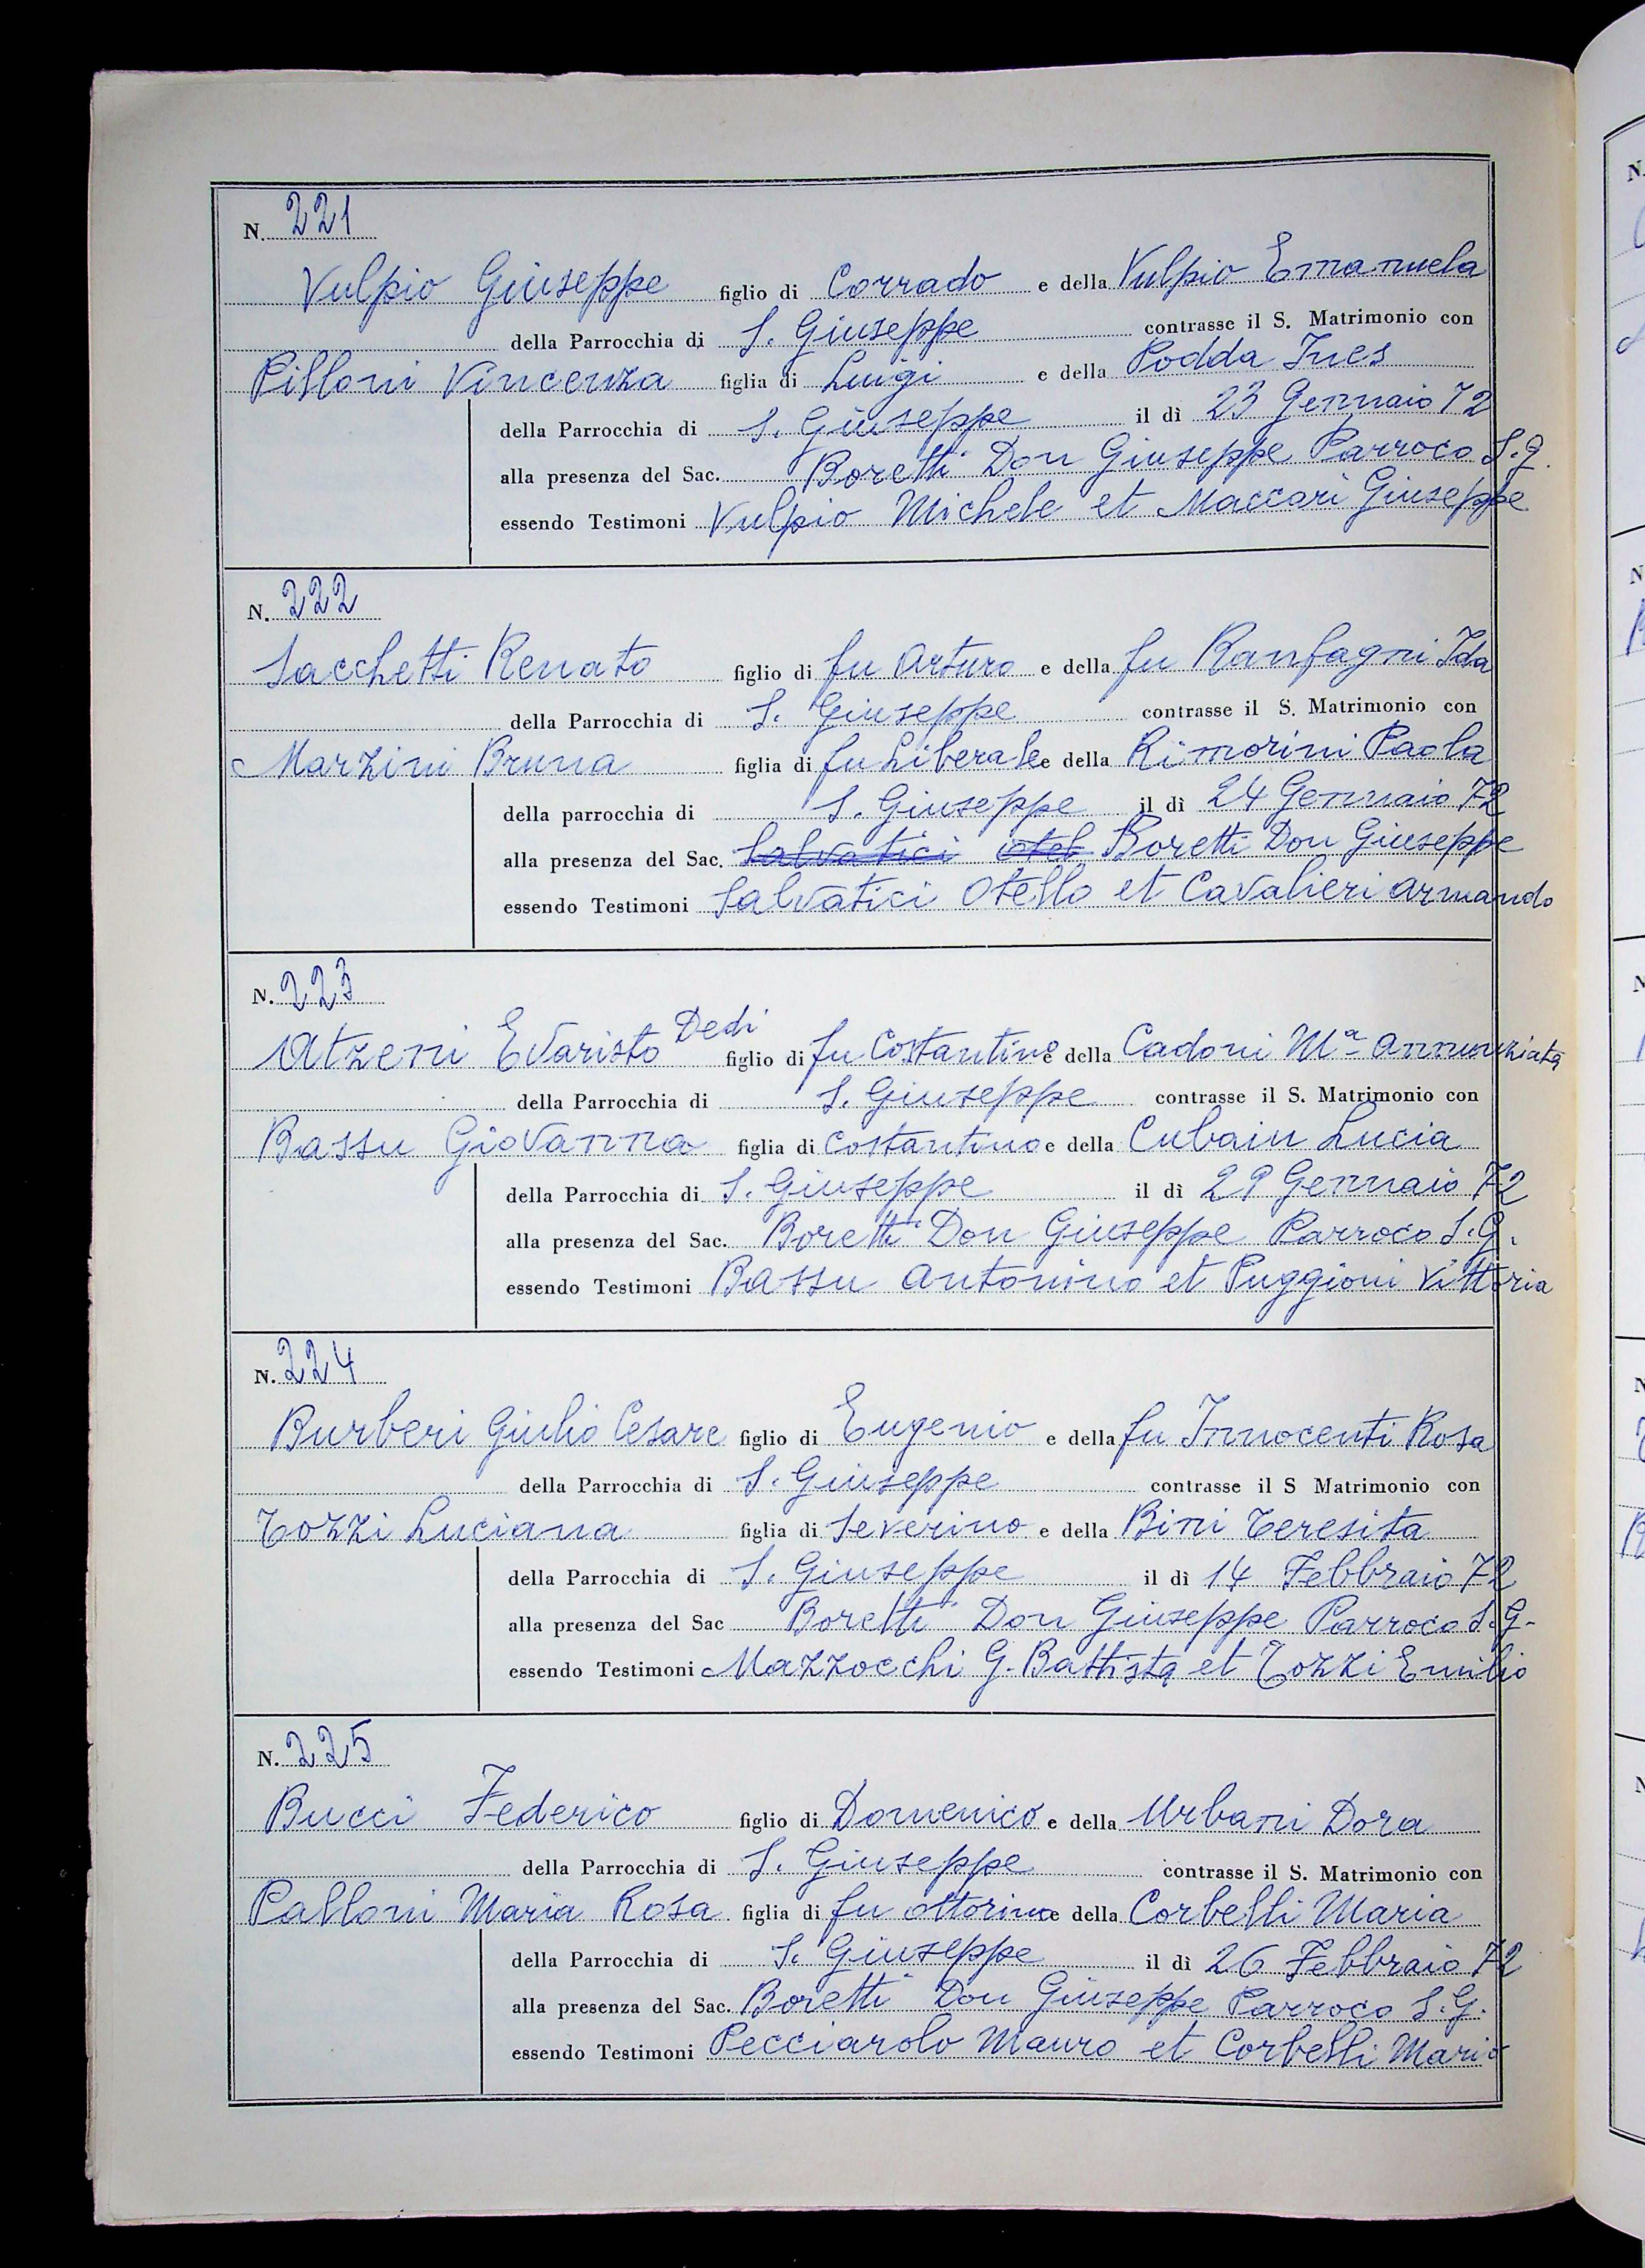 N. 221
Vulpio Giuseppe figlio di Corrado e della Vulpio Emanuela
della Parrocchia di S. Giuseppe contrasse il S. Matrimonio con
Pilloni Vincenza figlia di Luigi e della Podda Ines
della Parrocchia di S. Giuseppe il dì 23 Gennaio 72
alla presenza del Sac. Boretti Don Giuseppe Parroco S.G.
essendo Testimoni Vulpio Michele et Maccari Giuseppe
N. 222
Sacchetti Renato figlio di fu Arturo e della fu Ranfagni Ida
della Parrocchia di S. Giuseppe contrasse il S. Matrimonio con
Marzini Bruna figlia di fu Liberale e della Rimorini Paola
della parrocchia di S. Giuseppe il dì 24 Gennaio 72
alla presenza del Sac. Salvatici Otel Boretti Don Giuseppe
essendo Testimoni Salvatici Otello et Cavalieri Armando
N. 223
Atzeni Evaristo Dedi figlio di fu Costantino e della Cadoni Mª Annunziata
della Parrocchia di S. Giuseppe contrasse il S. Matrimonio con
Bassu Giovanna figlia di Costantino e della Cubain Lucia
della Parrocchia di S. Giuseppe il dì 29 Gennaio 72
alla presenza del Sac. Boretti Don Giuseppe Parroco S.G.
essendo Testimoni Bassu Antonino et Puggioni Vittoria
N. 224
Burberi Giulio Cesare figlio di Eugenio e della fu Innocenti Rosa
della Parrocchia di S. Giuseppe contrasse il S Matrimonio con
Tozzi Luciana figlia di Severino e della Bini Teresita
della Parrocchia di S. Giuseppe il dì 14 Febbraio 72
alla presenza del Sac Boretti Don Giuseppe Parroco S.G.
essendo Testimoni Mazzocchi G. Battista et Tozzi Emilio
N. 225
Bucci Federico figlio di Domenico e della Urbani Dora
della Parrocchia di S. Giuseppe contrasse il S. Matrimonio con
Palloni Maria Rosa figlia di fu Ottorino e della Corbelli Maria
della Parrocchia di S. Giuseppe il dì 26 Febbraio 72
alla presenza del Sac. Boretti Don Giuseppe Parroco S.G.
essendo Testimoni Pecciarolo Mauro et Corbelli Mario